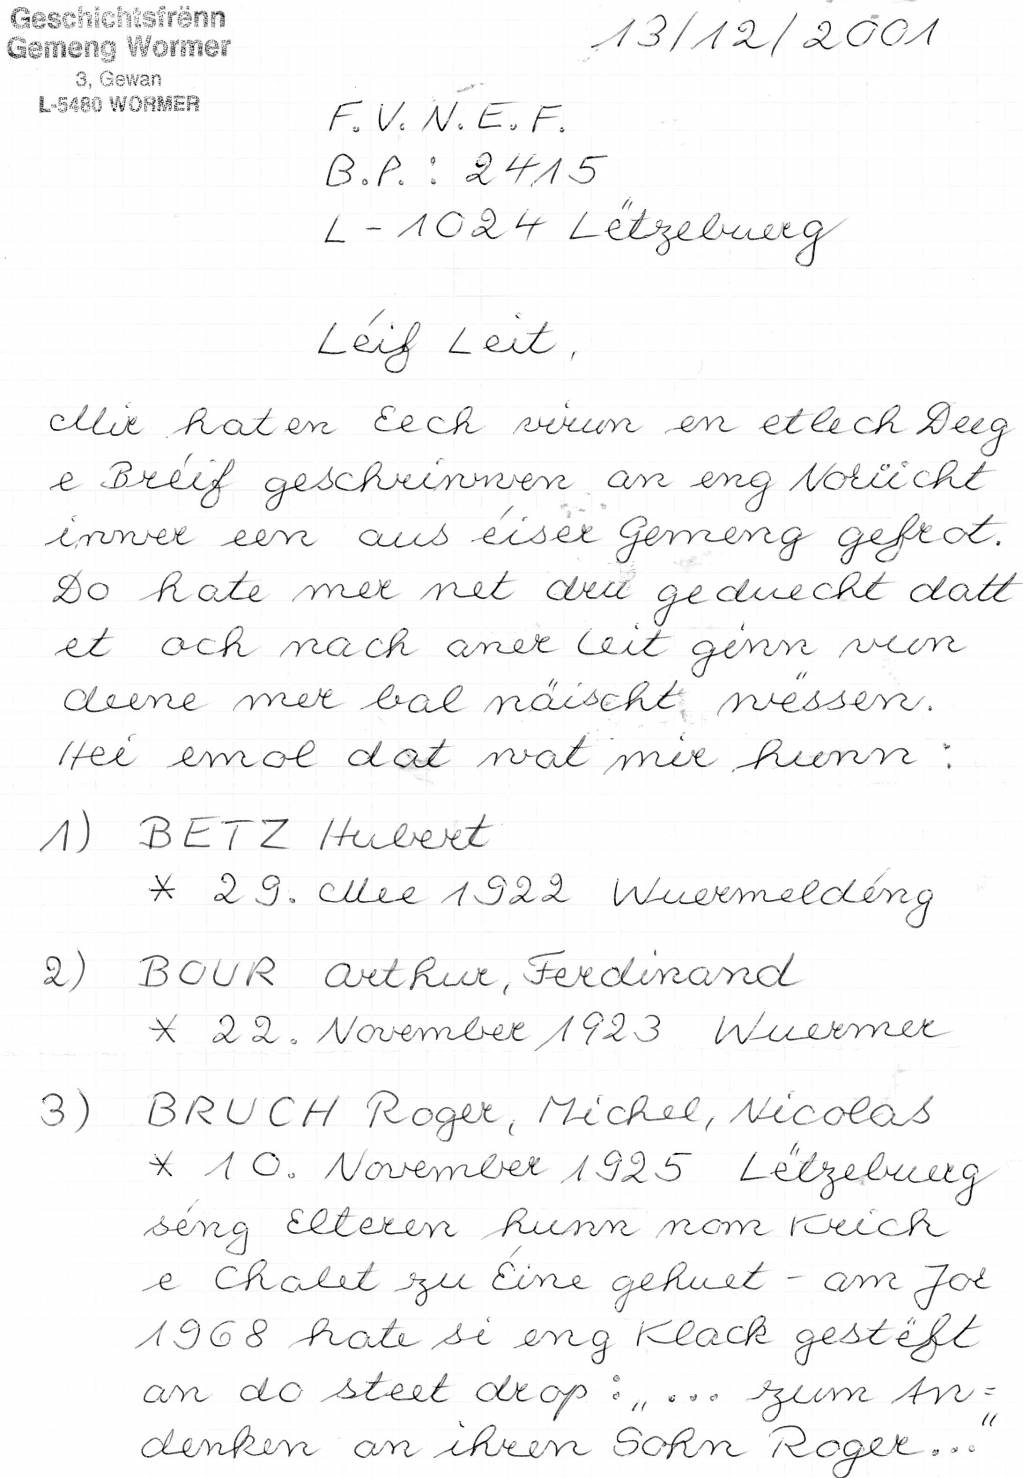 Geschichtsfrënn
Gemeng Wormer
3, Gewan
L-5480 WORMER
13/12/2001
F.V.N.E.F.
B.P.: 2415
L-1024 Lëtzebuerg
Léif Leit,
Mir haten Eech virun en etlech Deeg
e Bréif geschriwwen an eng Norücht
iwwer een aus éiser Gemeng gefrot.
Do hate mer net dru geduecht datt
et och nach aner Leit ginn vun
deene mer bal näischt wëssen.
Hei emol dat wat mir hunn:
1) BETZ Hubert
* 29. Mee 1922 Wuermeldéng
2) BOUR Arthur, Ferdinand
* 22. November 1923 Wuermer
3) BRUCH Roger, Michel, Nicolas
* 10. November 1925 Lëtzebuerg
séng Elteren hunn nom Krich
e Chalet zu Éine gehuet - am Jor
1968 hate si eng Klack gestëft
an do steet drop: „... zum An=
denken an ihren Sohn Roger..."